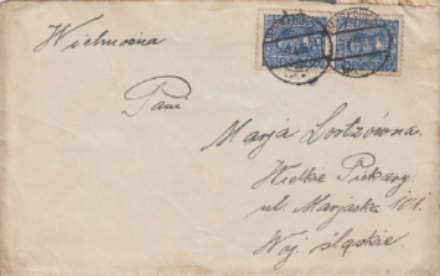 Wielmożna
Pani
Marja Lortzówna.
Wielkie Piekary.
ul. Marjacka 101.
Woj. śląskie.